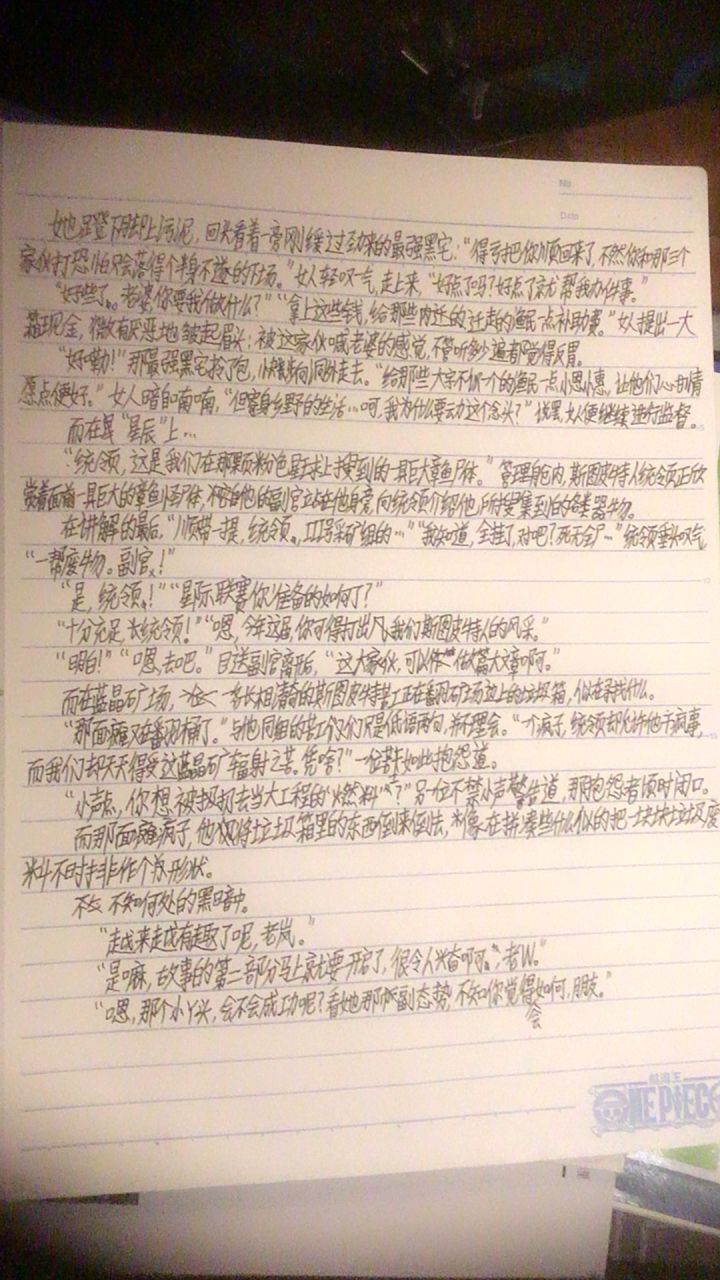 No.
Date
她蹬下脚上污泥，回头看着一旁刚缓过劲来的最强黑宅：“得亏把你顺回来了，不然你和那三个
家伙打恐怕只会落得个半身不遂的下场。”女人轻叹一气，走上来，“好点了吗？好点了就帮我办件事。”
“好些了。老婆你要我做什么？”“拿上这些钱，给那些内迁的迁走的渔民一点补助费。”女人提出一大
箱现金，微有厌恶地皱起眉头：被这家伙喊老婆的感觉，不管听多少遍都觉得反胃。
“好嘞！”那最强黑宅拎了包，小跑向洞外走去。“给那些大字不识一个的渔民一点小恩小惠，让他们心甘情
愿点便好。”女人暗自喃喃，“但宿身乡野的生活…呵，我为什么要动这个念头？”说罢，女人便继续进行监督。
而在“星辰”上…
“统领，这是我们在那颗粉色星球上搜到的一具巨大章鱼尸体。”管理舱内，斯图皮特人统领正欣
赏着面前一具巨大的章鱼尸体，他的副官站在他身旁，向统领介绍他所搜集到的各类器物。
在讲解的最后，“顺带一提，统领，采矿组的…”“我知道，全挂了，对吧？死无全尸…”统领垂头叹气，
“一帮废物。副官！”
“是，统领！”“星际联赛你准备的如何了？”
“十分充足，统领！”“嗯，今年这届，你可得打出我们斯图皮特人的风采。”
“明白！”“嗯，去吧。”目送副官离开后，“这大家伙，可以做篇大文章啊。”
而在蓝晶矿场，一名长相清奇的斯图皮特苦工正在翻矿场边上的垃圾箱，似在寻找什么。
“那面瘫又在翻桶了。”与他同组的苦工们只是低语两句，并不理会。“一个疯子，统领却允许他干疯事，
而我们却天天得受这蓝晶矿辐射之苦。凭啥？”一位苦工如此抱怨道。
“小声点，你想被抓去当大工程的‘燃料’？”另一位不禁小声警告道，那抱怨者顷时闭口。
而那面瘫疯子，他仅将垃圾箱里的东西倒来倒去，像在拼凑些什么似的把一块块垃圾废
料不时排作个个形状。
不知何处的黑暗中。
“越来越有趣了呢，老岚。”
“是嘛，故事的第二部分马上就要开启了，很令人兴奋啊，老W。”
“嗯，那个小丫头，会不会成功呢？看她那副态势，不知你会觉得如何，朋友。”
航海王
ONE PIECE